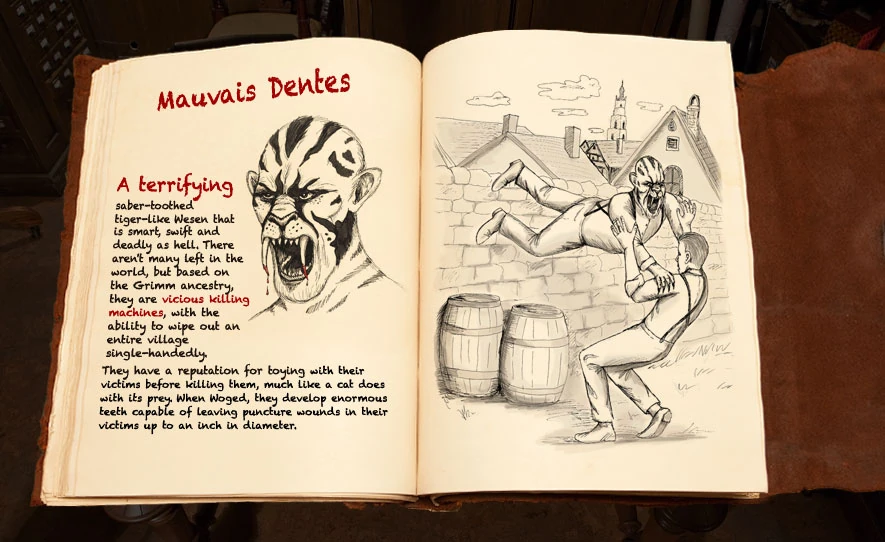 Mauvais Dentes
A terrifying
saber-toothed
tiger-like Wesen that
is smart, swift and
deadly as hell. There
aren't many left in the
world, but based on
the Grimm ancestry,
they are vicious killing
machines, with the
ability to wipe out an
entire village
single-handedly.
They have a reputation for toying with their
victims before killing them, much like a cat does
with its prey. When Woged, they develop enormous
teeth capable of leaving puncture wounds in their
victims up to an inch in diameter.